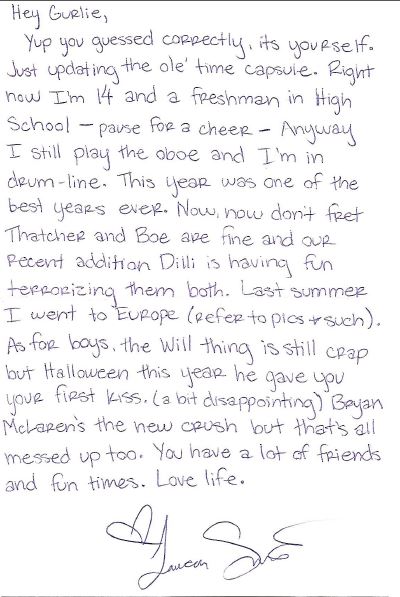 Hey Gurlie,
Yup you guessed correctly, its yourself.
Just updating the ole' time capsule. Right
now I'm 14 and a freshman in High
School – pause for a cheer – Anyway
I still play the oboe and I'm in
drum-line. This year was one of the
best years ever. Now, now don't fret
Thatcher and Boe are fine and our
recent addition Dilli is having fun
terrorizing them both. Last summer
I went to Europe (refer to pics + such).
As for boys, the Will thing is still crap
but Halloween this year he gave you
your first kiss. (a bit disappointing) Bryan
McLaren's the new crush but that's all
messed up too. You have a lot of friends
and fun times. Love life.
♡ Lauren